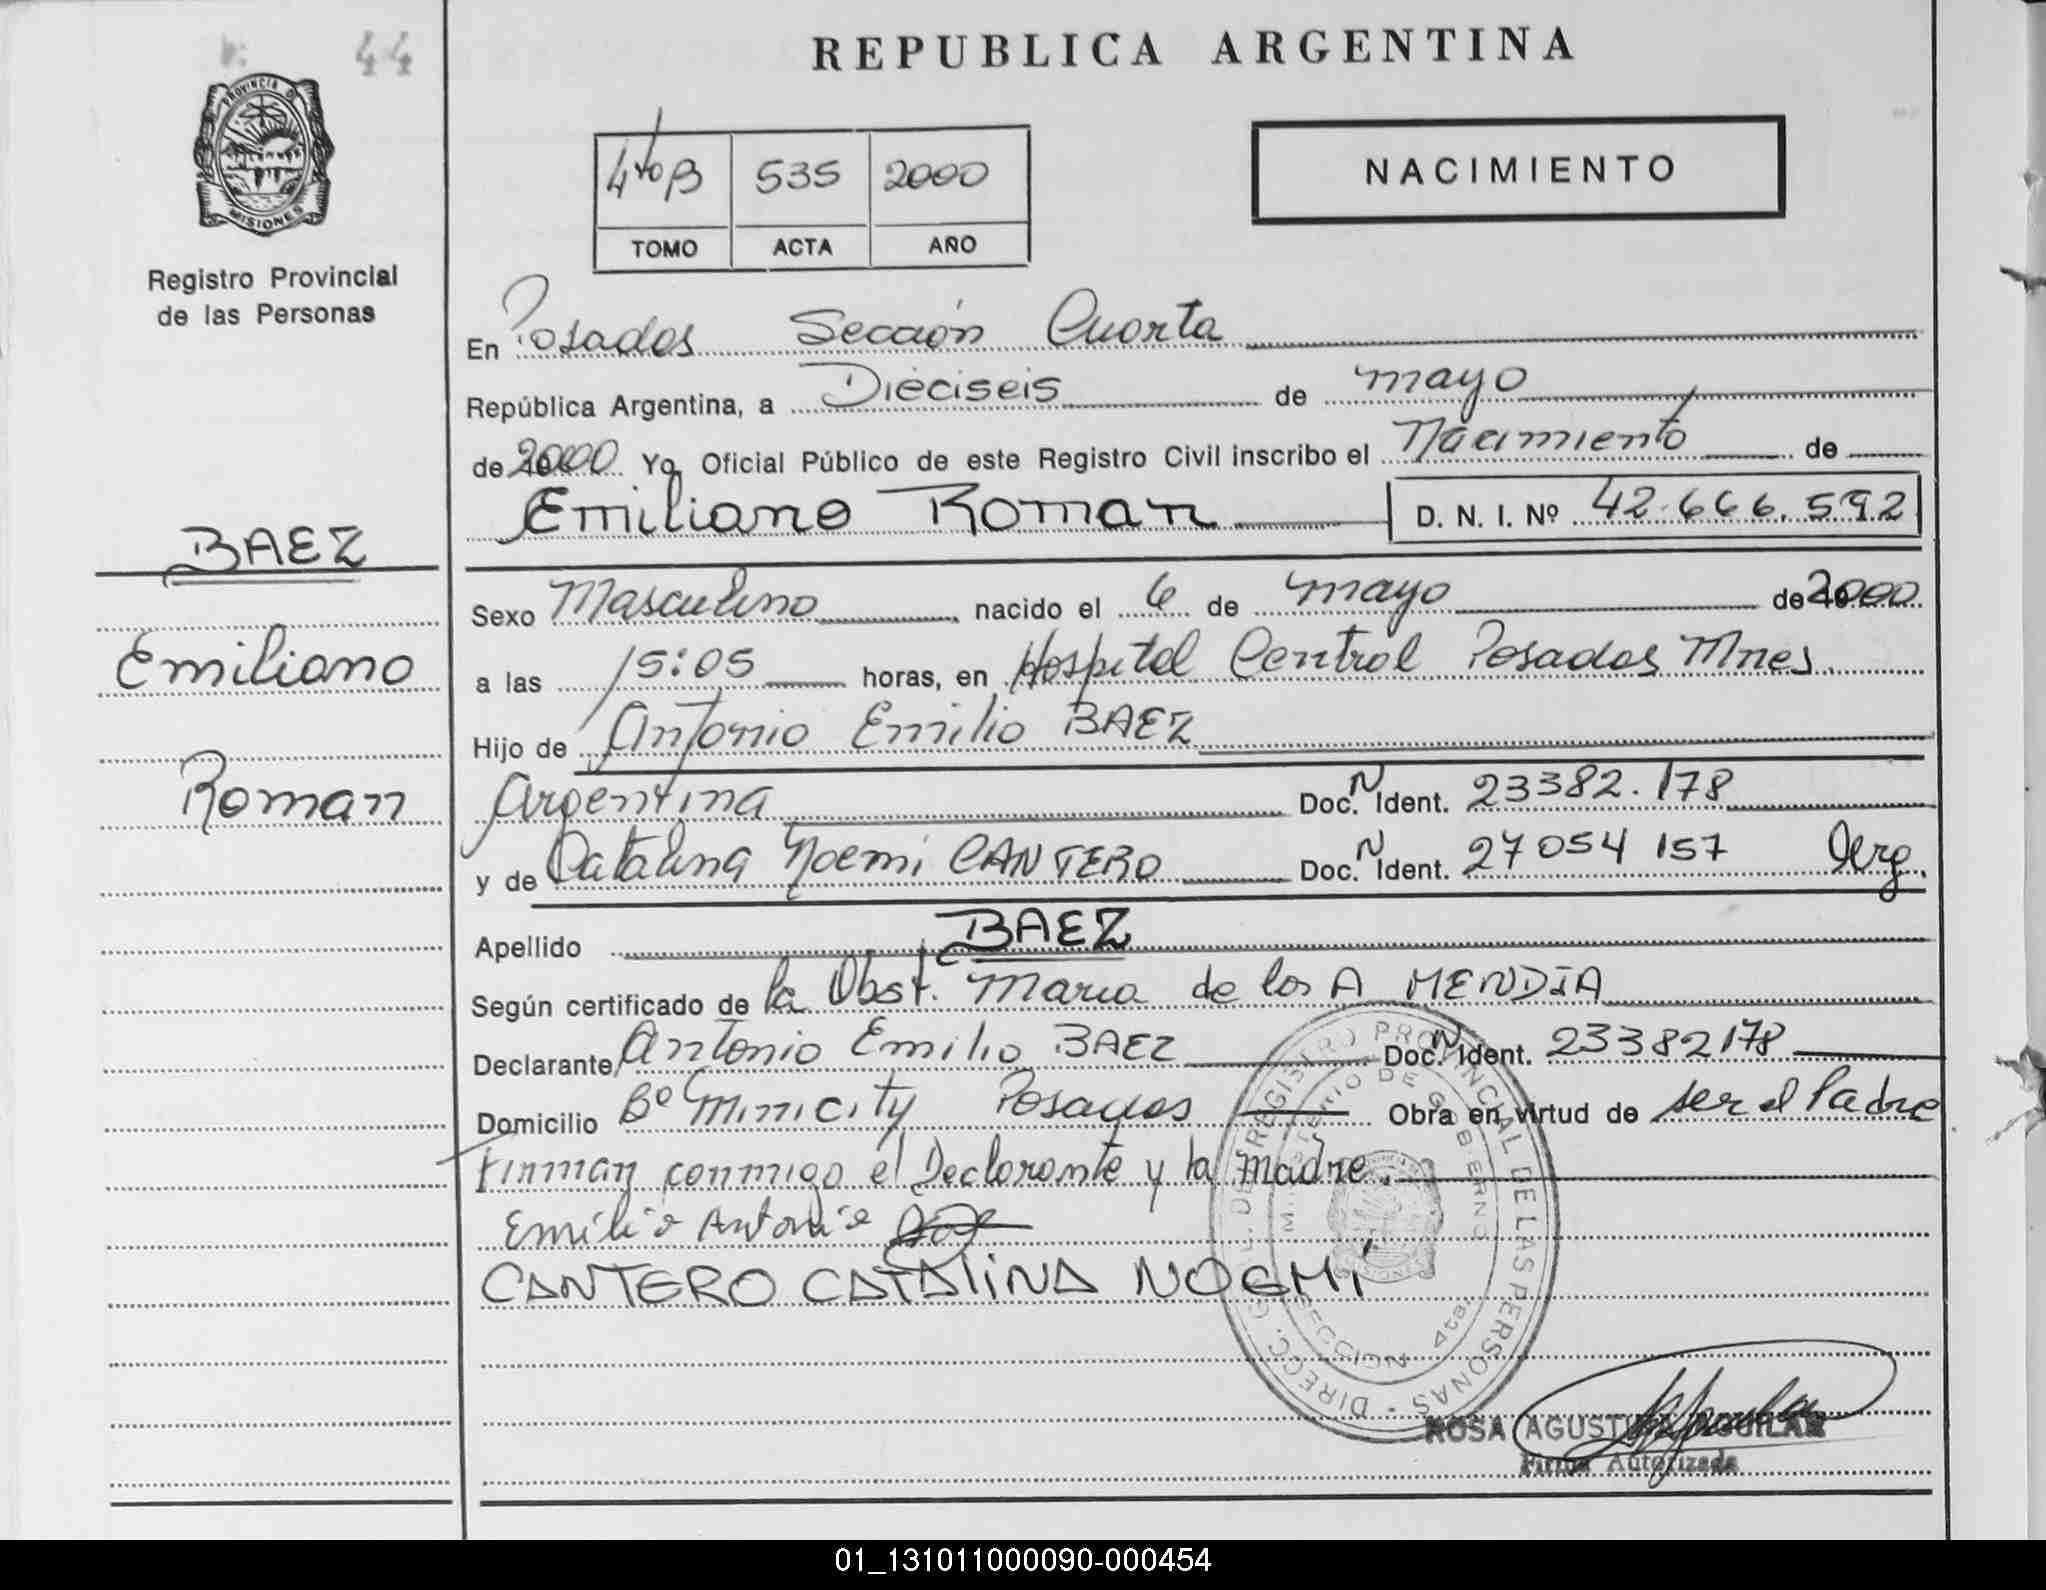 44
REPUBLICA ARGENTINA
PROVINCIA D
MISIONES
Registro Provincial
de las Personas
4to B 535 2000
TOMO ACTA AÑO
NACIMIENTO
En Posadas Sección Cuarta
República Argentina, a Dieciseis de mayo
de 2000 Yo, Oficial Público de este Registro Civil inscribo el Nacimiento de
Emiliano Roman D. N. I. Nº 42.666.592
BAEZ
Emiliano
Roman
Sexo Masculino nacido el 6 de mayo de 2000
a las 15:05 horas, en Hospital Central Posadas Mnes.
Hijo de Antonio Emilio BAEZ
Argentina Doc. N Ident. 23382.178
y de Catalina Noemi CANTERO Doc. N Ident. 27054157 Arg.
Apellido BAEZ
Según certificado de la Obst. Maria de los A MENDIA
Declarante Antonio Emilio BAEZ Doc. N Ident. 23382178
Domicilio Bº Minicity Posadas Obra en virtud de ser el Padre
Firman conmigo el Declarante y la Madre.
Emilio Antonio
CANTERO CATALINA NOEMI
DIRECC. GRAL. DE REGISTRO PROVINCIAL DE LAS PERSONAS -
MINISTERIO DE GOBIERNO
MISIONES
SECCION 4ta.
ROSA AGUSTINA AGUILAR
Firma Autorizada
01_131011000090-000454